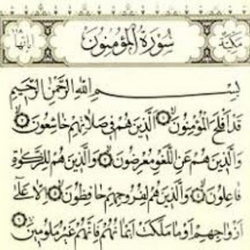 مكية
سورة المؤمنون
بسم الله الرحمن الرحيم
قد أفلح المؤمنون ۝ الذين هم في صلاتهم خاشعون ۝
والذين هم عن اللغو معرضون ۝ والذين هم للزكوة
فاعلون ۝ والذين هم لفروجهم حافظون ۝ إلا على
أزواجهم أو ما ملكت أيمانهم فإنهم غير ملومين ۝